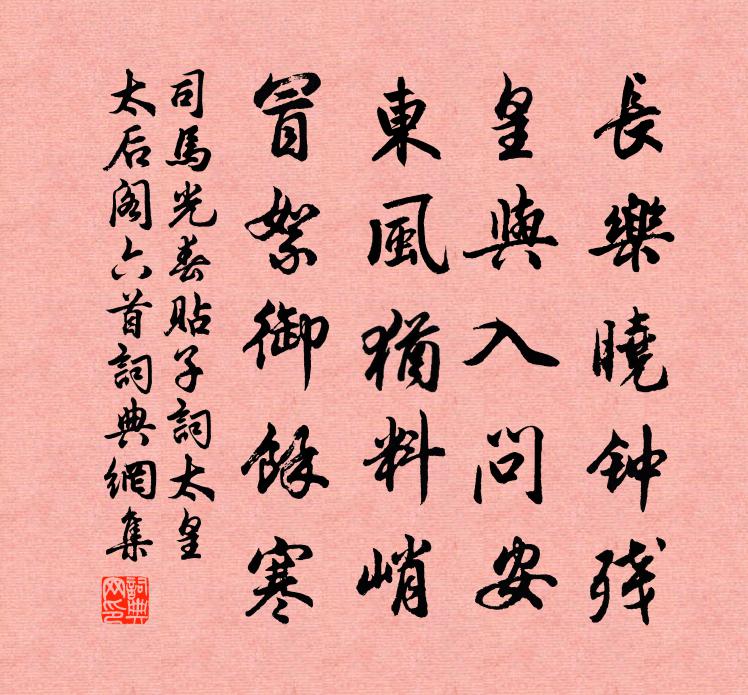 長樂曉钟残
皇與入問安
東風猶料峭
冒絮御餘寒
司馬光春貼子詞太皇
太后阁六首詞典網集
詞典网印